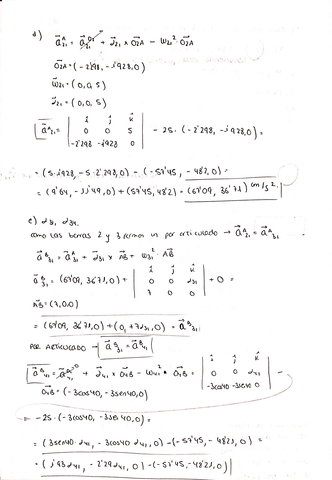 d) a⃗ᴬ₂₁ = a⃗ᴼ²₂₁ + α⃗₂₁ × O₂A − ω₂₁² · O₂A
O₂A = (−2'298, −1'928, 0)
ω⃗₂₁ = (0, 0, 5)
α⃗₂₁ = (0, 0, 5)
a⃗ᴬ₂₁ = | i j k ; 0 0 5 ; −2'298 −1'928 0 | − 25 · (−2'298, −1'928, 0) =
= (5·1'928, −5·2'298, 0) − (−57'45, −48'2, 0) =
= (9'64, −11'49, 0) + (57'45, 48'2) = (67'09, 36'71) cm/s².
e) α₃₁, α₄₁.
como las barras 2 y 3 forman un par articulado → a⃗ᴬ₂₁ = a⃗ᴬ₃₁
a⃗ᴮ₃₁ = a⃗ᴬ₃₁ + α⃗₃₁ × AB + ω₃₁² · AB
a⃗ᴮ₃₁ = (67'09, 36'71, 0) + | i j k ; 0 0 α₃₁ ; 7 0 0 | + 0 =
AB = (7, 0, 0)
= (67'09, 36'71, 0) + (0, +7α₃₁, 0) = a⃗ᴮ₃₁
PAR ARTICULADO → a⃗ᴮ₃₁ = a⃗ᴮ₄₁
a⃗ᴮ₄₁ = a⃗ᴼ⁴₄₁ + α⃗₄₁ × O₄B − ω₄₁² · O₄B = | i j k ; 0 0 α₄₁ ; −3cos40 −3sen40 0 |
O₄B = (−3cos40, −3sen40, 0)
− 25 · (−3cos40, −3sen40, 0) =
= (3sen40 · α₄₁, −3cos40 α₄₁, 0) − (−57'45, −48'21, 0) =
= (1'93α₄₁, −2'29α₄₁, 0) − (−57'45, −48'21, 0)